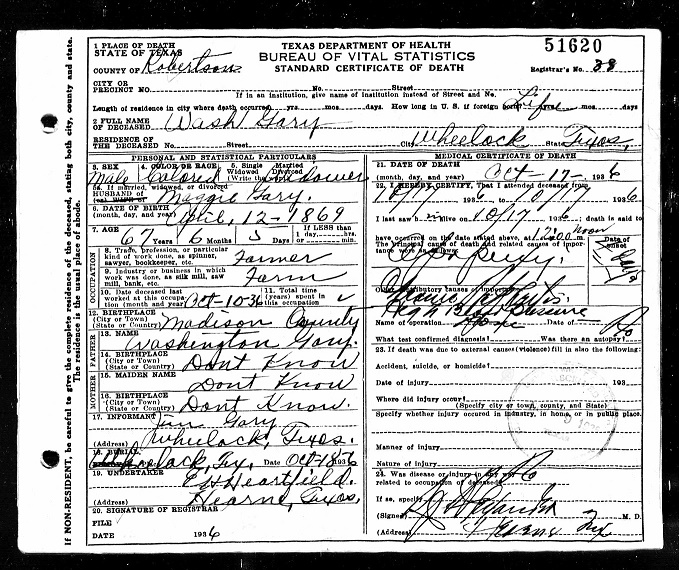 If NON-RESIDENT, be careful to give the complete residence of the deceased, stating both city, county and state.
The residence is the usual place of abode.
1 PLACE OF DEATH
STATE OF TEXAS
COUNTY OF Robertson
TEXAS DEPARTMENT OF HEALTH
BUREAU OF VITAL STATISTICS
STANDARD CERTIFICATE OF DEATH
51620
Registrar's No. 38
CITY OR
PRECINCT NO. No. Street
If in an institution, give name of institution instead of Street and No.
Length of residence in city where death occurred yrs. mos. days. How long in U. S. if foreign born? Life years mos. days
2 FULL NAME
OF DECEASED Wash Gary
RESIDENCE OF
THE DECEASED No. Street. City Wheelock State Texos,
PERSONAL AND STATISTICAL PARTICULARS
3. SEX 4. COLOR OR RACE 5. Single Married
Widowed Divorced
(Write the word)
Male Colored Widower
5a. If married, widowed, or divorced
HUSBAND OF
(or) WIFE of Maggie Gary.
6. DATE OF BIRTH
(month, day, and year) April, 12-1869
7. AGE If LESS than
1 day, hrs.
or min.
67 Years 6 Months 5 Days
OCCUPATION
8. Trade, profession, or particular
kind of work done, as spinner,
sawyer, bookkeeper, etc. Farmer
9. Industry or business in which
work was done, as silk mill, saw
mill, bank, etc. Farm
10. Date deceased last
worked at this occupa-
tion (month and year) Oct-10-36
11. Total time
(years) spent in
this occupation
12. BIRTHPLACE
(City or Town)
(State or Country) Madison County
FATHER
13. NAME
Washington Gary.
14. BIRTHPLACE
(City or Town)
(State or Country) Dont Know
MOTHER
15. MAIDEN NAME
Dont Know
16. BIRTHPLACE
(City or Town)
(State or Country) Dont Know.
17. INFORMANT Gary
(Address) Wheelock, Texos.
18. BURIAL
Wheelock, Tex. Date Oct-18- 1936
19. UNDERTAKER
Heartfield.
(Address) Hearne, Texos,
20. SIGNATURE OF REGISTRAR
FILE
DATE 1936
MEDICAL CERTIFICATE OF DEATH
21. DATE OF DEATH
(month, day, and year) Oct-17- 1936
22. I HEREBY CERTIFY, That I attended deceased from
10/17 1936 to 10/17 1936
I last saw h m alive on 10/17 1936; death is said to
have occurred on the date stated above, at 12:00 noon
The principal cause of death and related causes of impor-
tance were as follows: Date of
onset
Other contributory causes of importance:
High Blood Pressure
Name of operation None Date of
What test confirmed diagnosis? Was there an autopsy? No
23. If death was due to external causes (violence) fill in also the following:
Accident, suicide, or homicide?
Date of injury 193
Where did injury occur?
(Specify city or town, county, and State)
Specify whether injury occured in industry, in home, or in public place.
Manner of injury
Nature of injury
24. Was disease or injury in any way
related to occupation of deceased? No
If so, specify
(Signed) M. D.
(Address) Hearne Tex